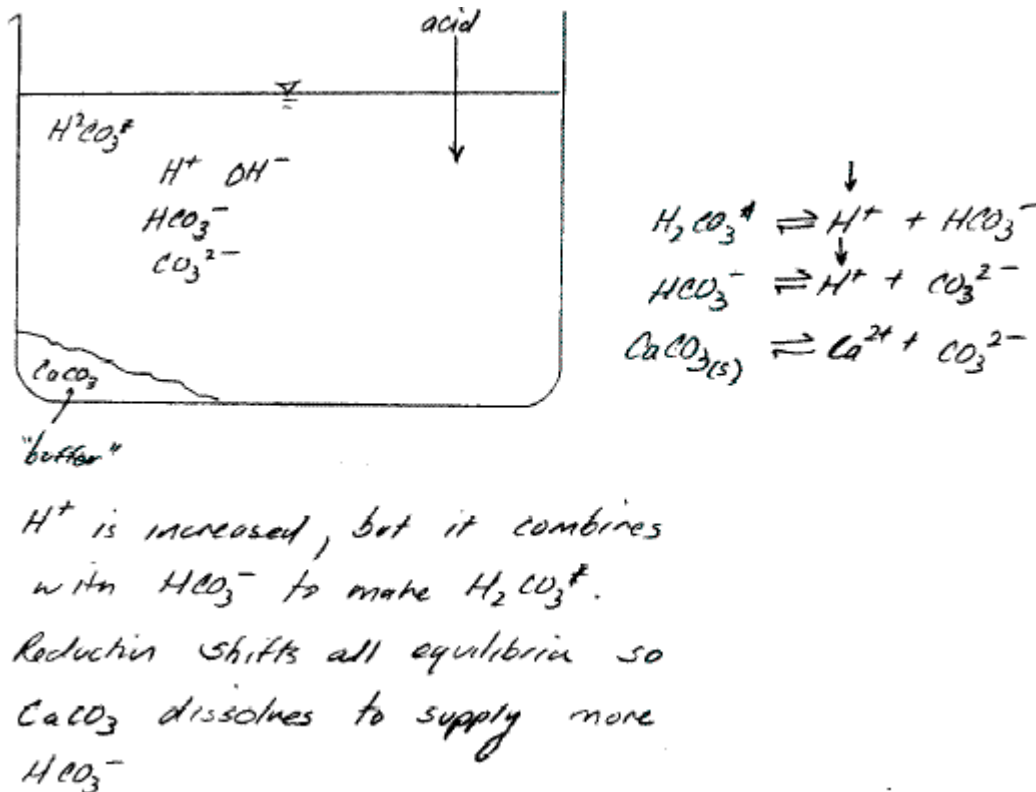 acid
H²CO₃*
H⁺ OH⁻
HCO₃⁻
CO₃²⁻
CaCO₃
"buffer"
H₂CO₃* ⇌ H⁺ + HCO₃⁻
HCO₃⁻ ⇌ H⁺ + CO₃²⁻
CaCO₃(s) ⇌ Ca²⁺ + CO₃²⁻
H⁺ is increased, but it combines
with HCO₃⁻ to make H₂CO₃*.
Reduction shifts all equilibria so
CaCO₃ dissolves to supply more
HCO₃⁻